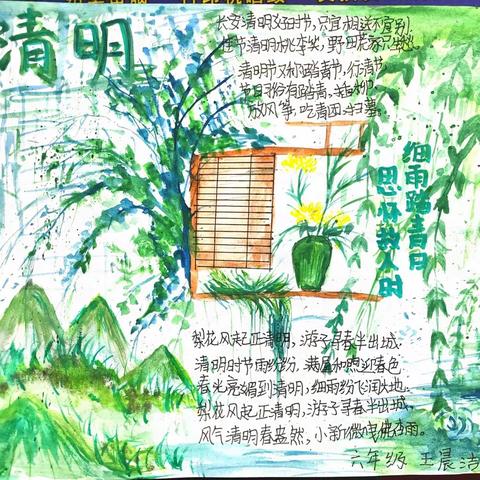 清明
长安清明好时节,只宜相送不宜别
佳节清明桃李笑,野田荒冢只生愁。
清明节又称踏青节,行清节
节日习俗有踏青、植树
放风筝,吃青团、扫墓。
细雨踏青日
思怀故人时
梨花风起正清明,游子寻春半出城.
清明时节雨纷纷,满屋和煦迎春色
春光亮媚到清明,细雨纷飞润大地.
梨花风起正清明,游子寻春半出城,
风气清明春盎然,小雨微
六年级 王晨洁